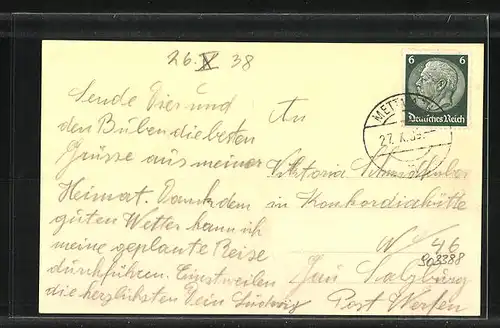 26. X 38
Sende Dir und
den Buben die besten
Grüsse aus meiner
Heimat. Dank dem
guten Wetter kann ich
meine geplante Reise
durchführen. Einstweilen
die herzlichsten Dein Ludwig
An
Viktoria
in Konkordiahütte
No 46
903388
Gau Salzburg
Post Werfen
6 6
Deutsches Reich
METT
27. X. 38